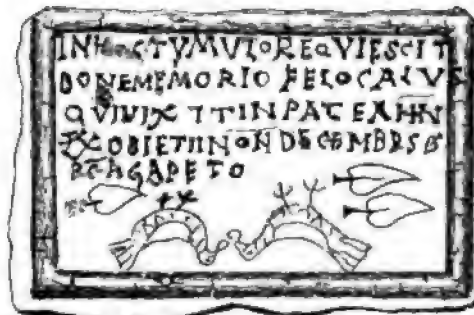 IN HOC TVMVLO REQVIESCIT
BONE MEMORIO FELOCALVS
QVI VIXIT IN PACE ANN
OBIET II NON DECEMBRS
PC AGAPETO